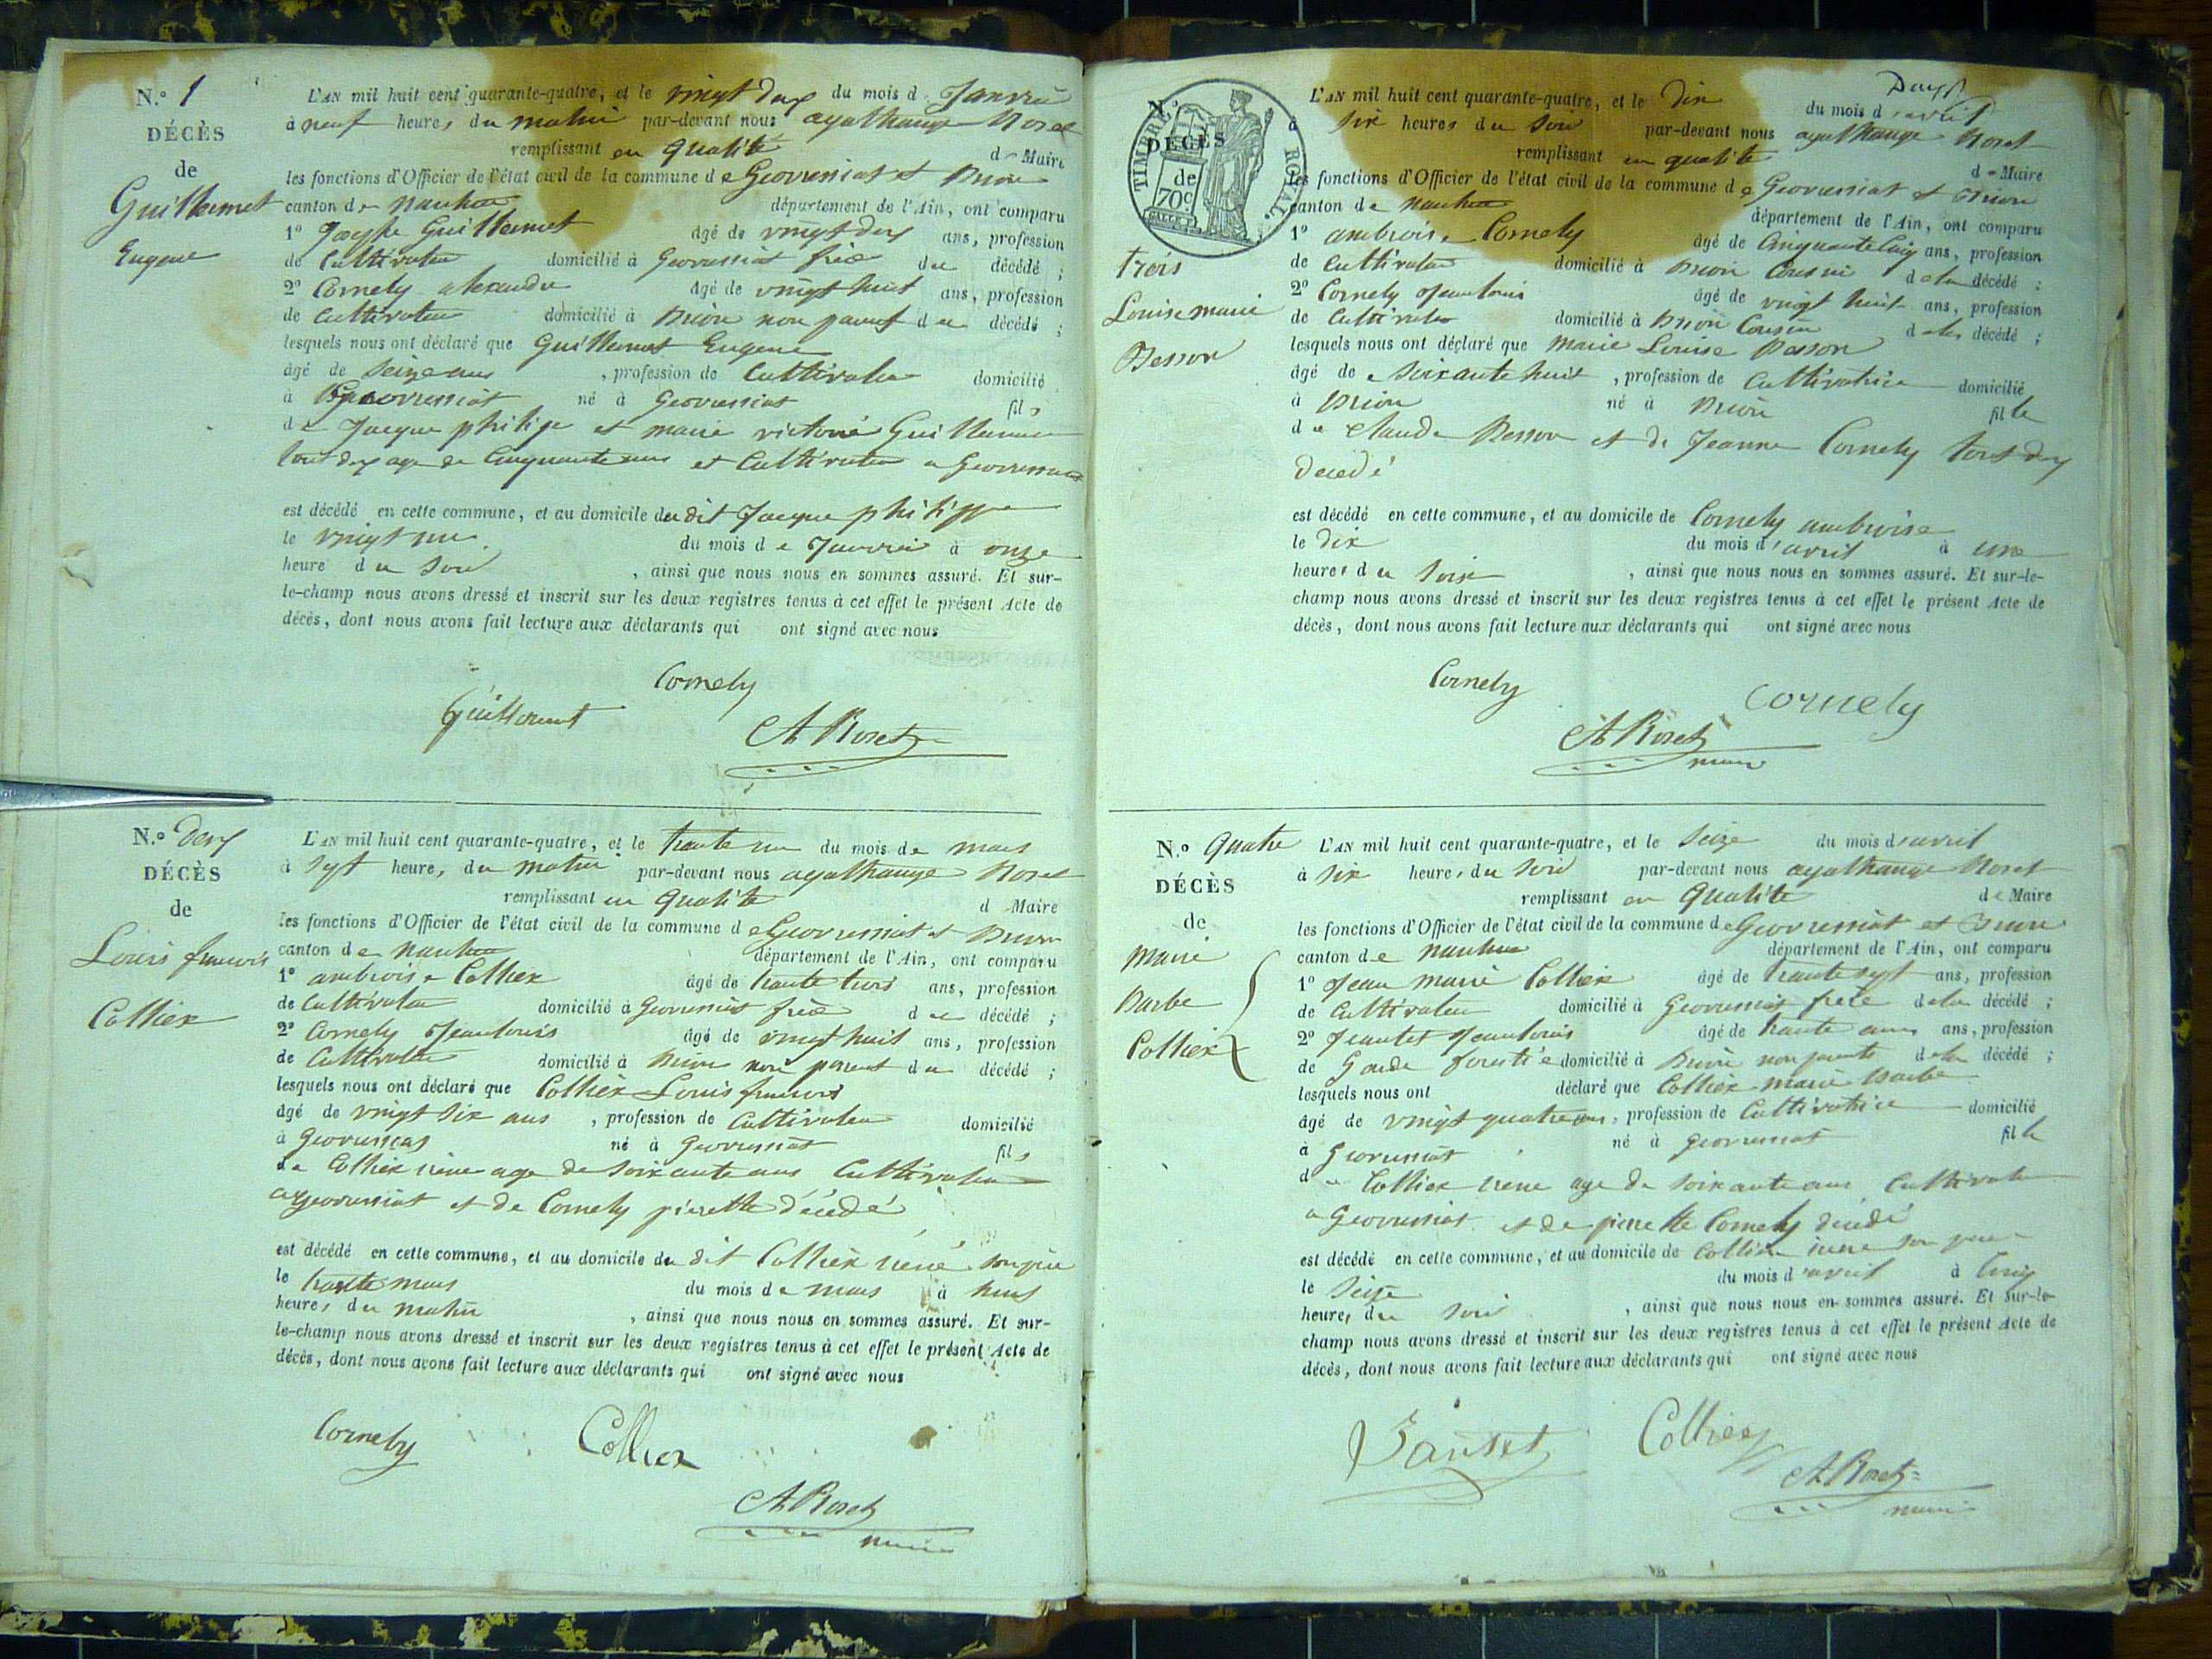 N.o 1
DÉCÈS
de
Guillermet
Eugene
L'AN mil huit cent quarante-quatre, et le vingt deux du mois d Janvier
à neuf heures du matin par-devant nous agathange Roset
remplissant en qualité de Maire
les fonctions d'Officier de l'état civil de la commune de Geovressiat et Brion
canton de nantua département de l'Ain, ont comparu
1o Joseph Guillermet âgé de vingt deux ans, profession
de Cultivateur domicilié à Geovressiat frère du décédé ;
2o Cornely alexandre âgé de vingt huit ans, profession
de Cultivateur domicilié à Brion non parent du décédé ;
lesquels nous ont déclaré que Guillermet Eugene
âgé de seize ans , profession de Cultivateur domicilié
à Geovressiat né à Geovressiat fils
de Jacque philipe et marie victoire Guillermet
tout deux age de Cinquante ans et Cultivateur a Geovressiat
est décédé en cette commune, et au domicile du dit Jacque philippe
le vingt un du mois de Janvier à onze
heure du soir , ainsi que nous nous en sommes assuré. Et sur-
le-champ nous avons dressé et inscrit sur les deux registres tenus à cet effet le présent Acte de
décès, dont nous avons fait lecture aux déclarants qui ont signé avec nous
Cornely
Guillermet
A Roset
N.o deux
DÉCÈS
de
Louis francois
Collier
L'AN mil huit cent quarante-quatre, et le trante un du mois de mars
à sept heures du matin par-devant nous agathange Roset
remplissant en qualité d Maire
les fonctions d'Officier de l'état civil de la commune de Geovressiat et Brion
canton de nantua département de l'Ain, ont comparu
1o ambroise Collier âgé de trante trois ans, profession
de Cultivateur domicilié à Geovressiat frère du décédé ;
2o Cornely Jean louis âgé de vingt huit ans, profession
de Cultivateur domicilié à Brion non parent du décédé ;
lesquels nous ont déclaré que Collier Louis francois
âgé de vingt six ans , profession de Cultivateur domicilié
à Geovressiat né à Geovressiat fils
de Collier rène age de soixante ans Cultivateur
a geovressiat et de Cornely pierrette décédé
est décédé en cette commune, et au domicile du dit Collier rène son père
le trante mars du mois de mars à
heures du matin , ainsi que nous nous en sommes assuré. Et sur-
le-champ nous avons dressé et inscrit sur les deux registres tenus à cet effet le présent Acte de
décès, dont nous avons fait lecture aux déclarants qui ont signé avec nous
Cornely Collier
A Roset
maire
N.o
DÉCÈS
de
TIMBRE ROYAL
70c
trois
Louise marie
Besson
L'AN mil huit cent quarante-quatre, et le dix du mois d'avril
à six heures du soir par-devant nous agathange Roset
remplissant en qualité de Maire
les fonctions d'Officier de l'état civil de la commune de Geovressiat et Brion
canton de nantua département de l'Ain, ont comparu
1o ambroise Cornely âgé de Cinquante Cinq ans, profession
de Cultivateur domicilié à Brion Cousin de la décédé ;
2o Cornely Jean louis âgé de vingt huit ans, profession
de Cultivateur domicilié à Brion Cousin de la décédé ;
lesquels nous ont déclaré que Marie Louise Besson
âgé de soixante huit , profession de Cultivatrice domicilié
à Brion né à Brion fille
de Claude Besson et de Jeanne Cornely tout deux
décédé
est décédé en cette commune, et au domicile de Cornely ambroise
le dix du mois d'avril à une
heures du soir , ainsi que nous nous en sommes assuré. Et sur-le-
champ nous avons dressé et inscrit sur les deux registres tenus à cet effet le présent Acte de
décès, dont nous avons fait lecture aux déclarants qui ont signé avec nous
Cornely Cornely
A Roset
maire
N.o Quatre
DÉCÈS
de
Marie
Barbe
Collier
L'AN mil huit cent quarante-quatre, et le seize du mois d'avril
à six heures du soir par-devant nous agathange Roset
remplissant en Qualité de Maire
les fonctions d'Officier de l'état civil de la commune de Geovressiat et Brion
canton de nantua département de l'Ain, ont comparu
1o Jean marie Collier âgé de trante sept ans, profession
de Cultivateur domicilié à Geovressiat frère de la décédé ;
2o Jeantet Jean louis âgé de trante ans, profession
de Garde forestié domicilié à Brion non parent de la décédé ;
lesquels nous ont déclaré que Collier marie Barbe
âgé de vingt quatre ans, profession de Cultivatrice domicilié
à Geovressiat né à geovressiat fille
de Collier rène age de soixante ans Cultivateur
a Geovressiat et de pierrette Cornely décédé
est décédé en cette commune, et au domicile de Collier rène son père
le seize du mois d'avril à Cinq
heures du soir , ainsi que nous nous en sommes assuré. Et sur-le-
champ nous avons dressé et inscrit sur les deux registres tenus à cet effet le présent Acte de
décès, dont nous avons fait lecture aux déclarants qui ont signé avec nous
Jantet Collier
A Roset
maire